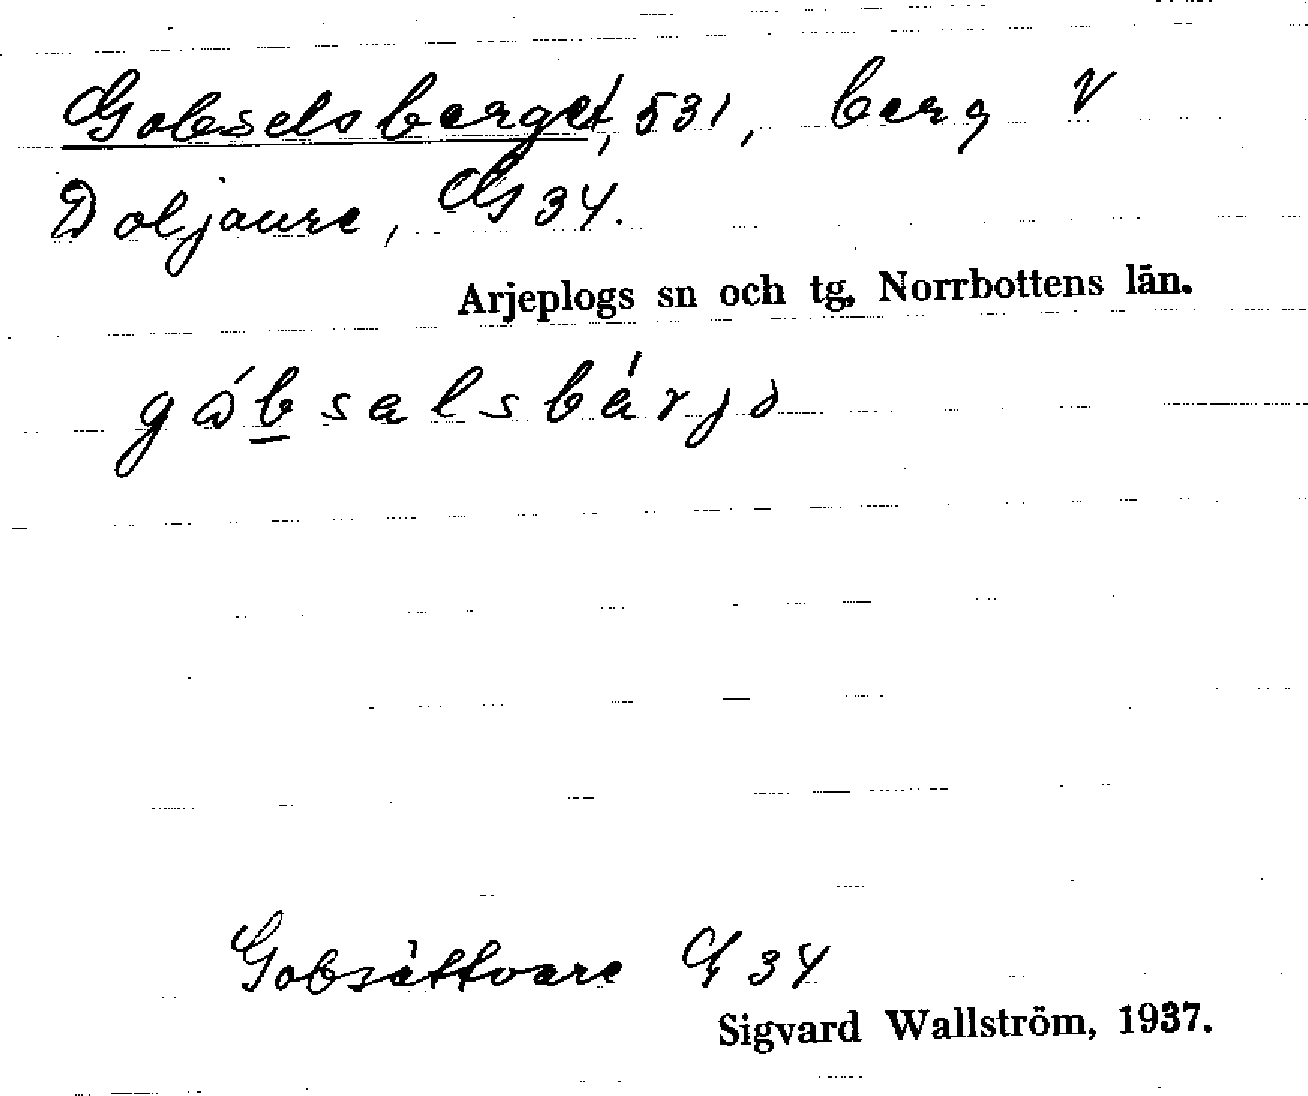 Gobselsberget, 531, berg V
Doljaure, G 34.
Arjeplogs sn och tg. Norrbottens län.
Gobsättvare G 34
Sigvard Wallström, 1937.